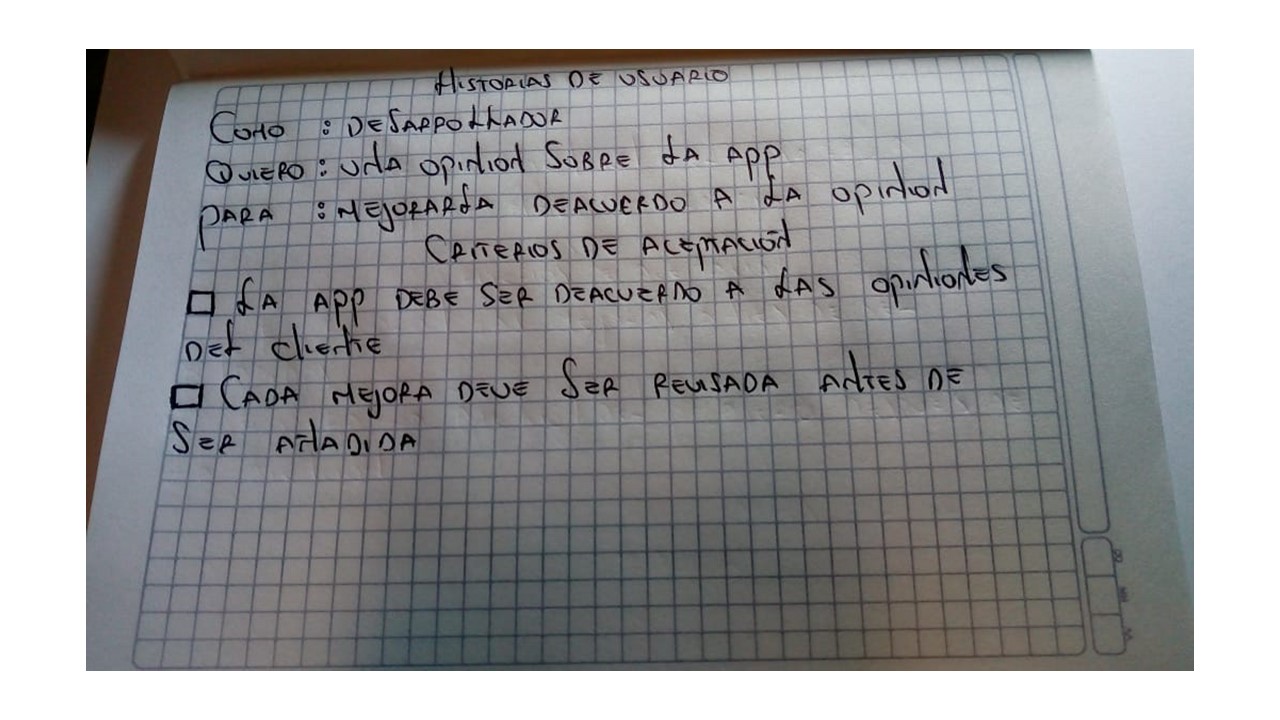 HISTORIAS DE USUARIO
COMO : DESARROLLADOR
QUIERO : UNA OPINION SOBRE LA APP
PARA : MEJORARLA DEACUERDO A LA OPINION
CRITERIOS DE ACEPTACIÓN
□ LA APP DEBE SER DEACUERDO A LAS OPINIONES
DEL CLIENTE
□ CADA MEJORA DEVE SER REVISADA ANTES DE
SER AÑADIDA